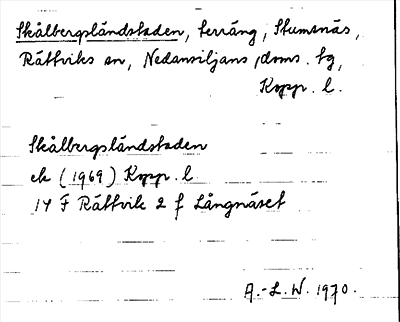 Skålbergsländstaden, terräng, Stumsnäs,
Rättviks sn, Nedansiljans doms. tg,
Kopp. l.
Skålbergsländstaden
ek (1969) Kopp. l
14 F Rättvik 2 f Långnäset
A.-L. W. 1970.